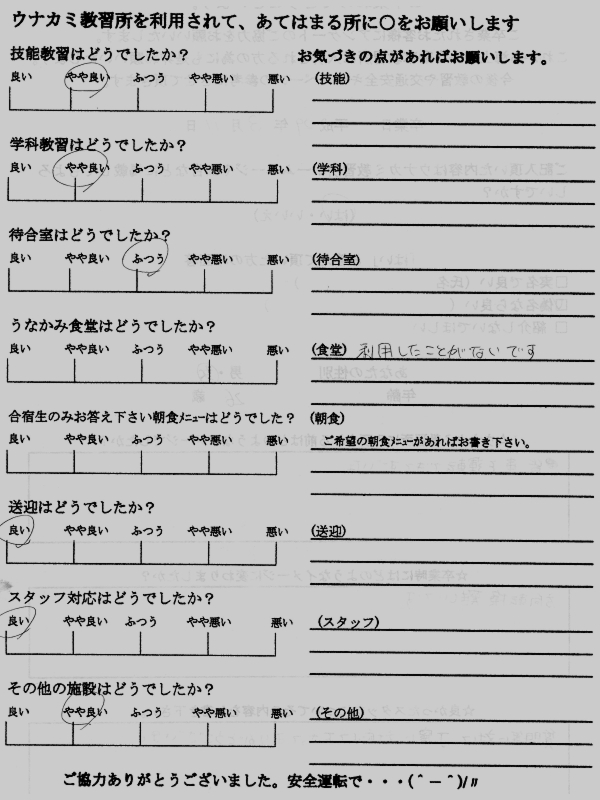 ウナカミ教習所を利用されて、あてはまる所に〇をお願いします
技能教習はどうでしたか？
お気づきの点があればお願いします。
良い やや良い ふつう やや悪い 悪い
(技能)
学科教習はどうでしたか？
良い やや良い ふつう やや悪い 悪い
(学科)
待合室はどうでしたか？
良い やや良い ふつう やや悪い 悪い
(待合室)
うなかみ食堂はどうでしたか？
良い やや良い ふつう やや悪い 悪い
(食堂) 利用したことがないです
合宿生のみお答え下さい朝食ﾒﾆｭｰはどうでしたか？
(朝食)
良い やや良い ふつう やや悪い 悪い
ご希望の朝食ﾒﾆｭｰがあればお書き下さい。
送迎はどうでしたか？
良い やや良い ふつう やや悪い 悪い
(送迎)
スタッフ対応はどうでしたか？
良い やや良い ふつう やや悪い 悪い
(スタッフ)
その他の施設はどうでしたか？
良い やや良い ふつう やや悪い 悪い
(その他)
ご協力ありがとうございました。安全運転で・・・(＾－＾)/〃